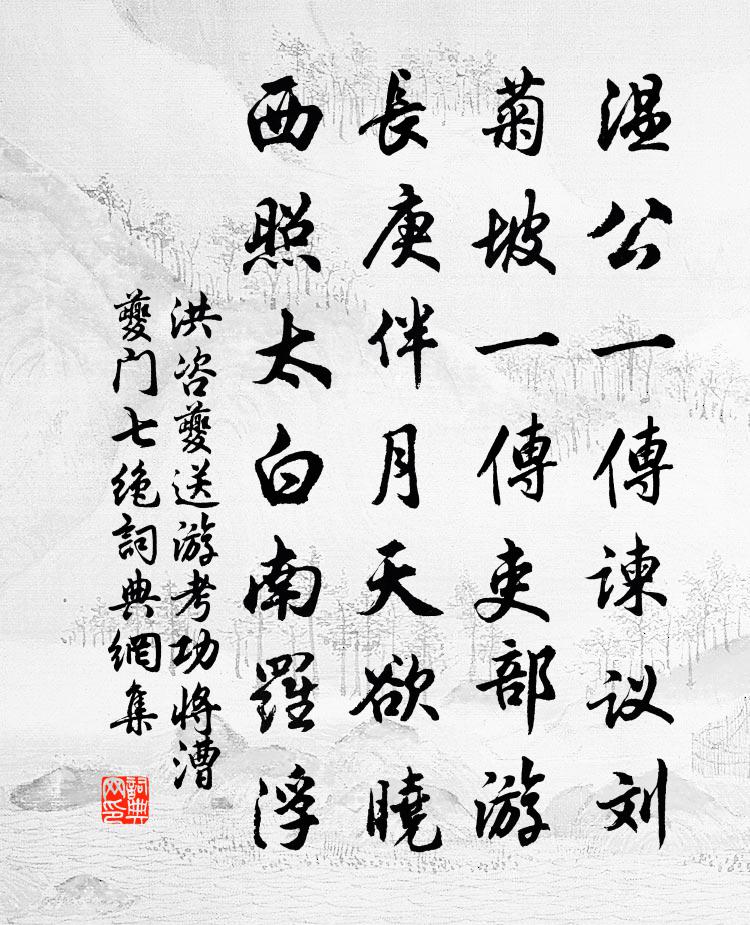 温公一傳諫议刘
菊坡一傳吏部游
長庚伴月天欲曉
西照太白南羅浮
洪咨夔送游考功將漕
夔门七绝詞典網集
詞典网印